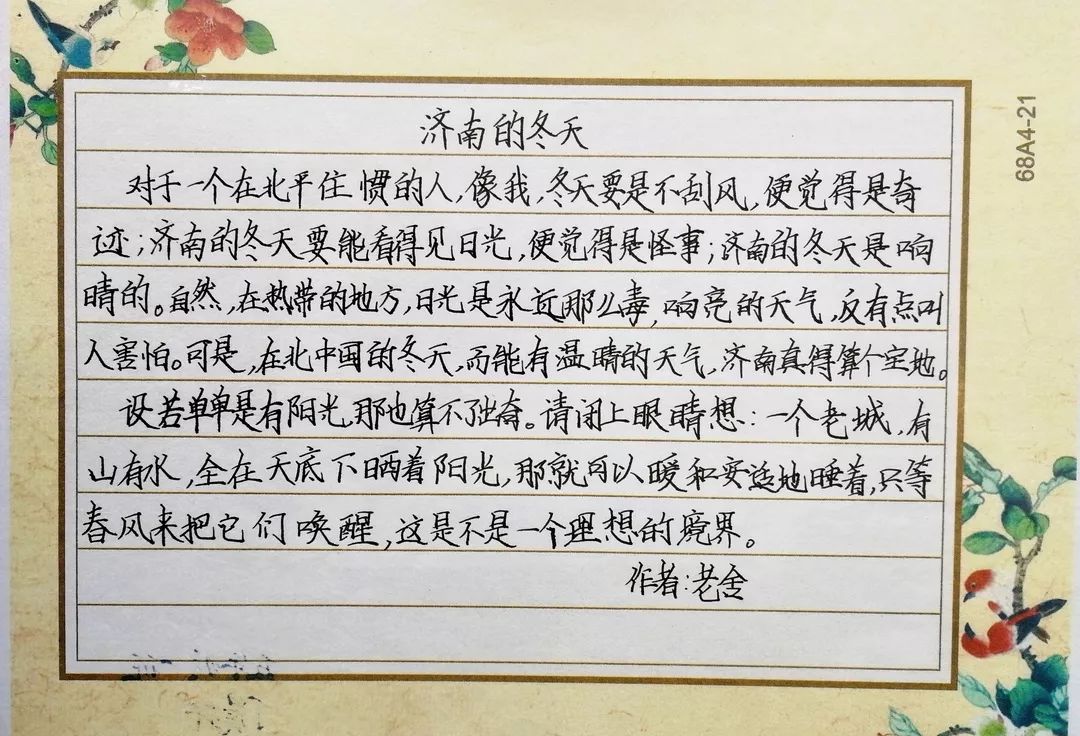 济南的冬天
对于一个在北平住惯的人,像我,冬天要是不刮风,便觉得是奇
迹;济南的冬天要能看得见日光,便觉得是怪事;济南的冬天是响
晴的。自然,在热带的地方,日光是永远那么毒,响亮的天气,反有点叫
人害怕。可是,在北中国的冬天,而能有温晴的天气,济南真得算个宝地。
设若单单是有阳光,那也算不了出奇。请闭上眼睛想:一个老城,有
山有水,全在天底下晒着阳光,那就可以暖和安适地睡着,只等
春风来把它们唤醒,这是不是一个理想的境界。
作者:老舍
68A4-21